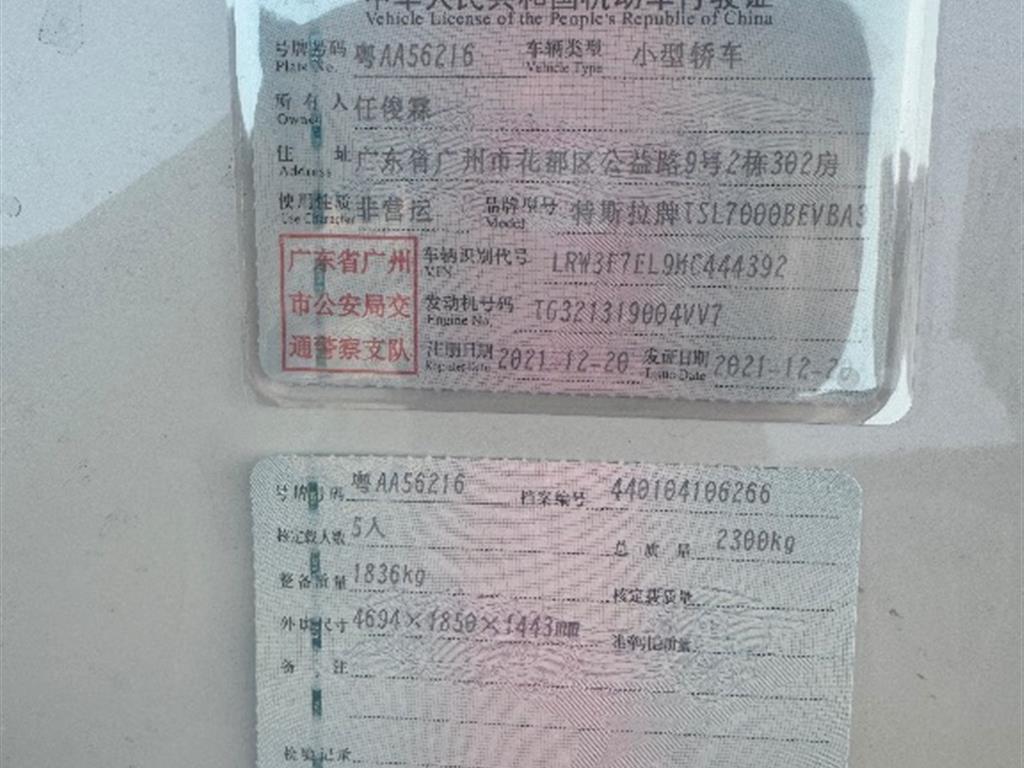 中华人民共和国机动车行驶证
Vehicle License of the People's Republic of China
号牌号码 粤AA56216 车辆类型 小型轿车
Plate No. Vehicle Type
所有人 任俊霖
Owner
住址 广东省广州市花都区公益路9号2栋302房
Address
使用性质 非营运 品牌型号 特斯拉牌TSL7000BEVBA3
Use Character Model
广东省广州 车辆识别代号 LRW3F7EL9MC444392
VIN
市公安局交 发动机号码 TG321319004VV7
Engine No.
通警察支队 注册日期 2021-12-20 发证日期 2021-12-20
Register Date Issue Date
号牌号码 粤AA56216 档案编号 440104106266
核定载人数 5人 总质量 2300kg
整备质量 1836kg 核定载质量
外廓尺寸 4694×1850×1443mm 准牵引总质量
备注
检验记录